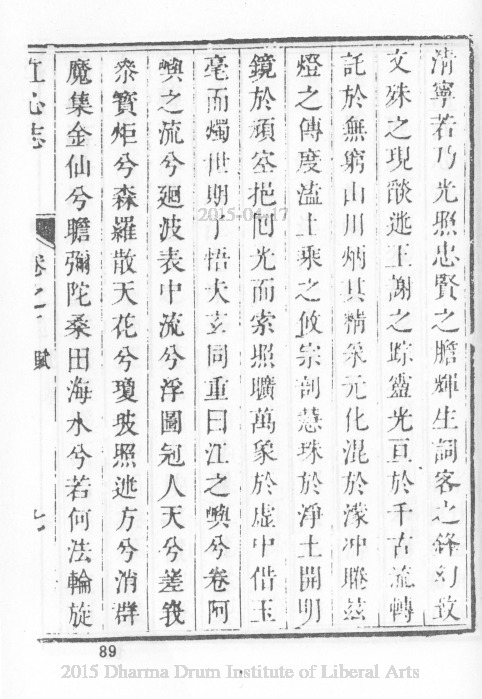 清寧若乃光照忠賢之膽輝生詞客之鋒幻故
文殊之現燄逃王謝之踪靈光亘於千古流轉
託於無窮山川炳其精彩元化混於濛冲睠茲
燈之傳度溘上乘之攸宗剖慧珠於淨土開明
鏡於頑空挹回光而索照曠萬象於虛中借玉
毫而燭世期了悟大玄同重曰江之嶼兮卷阿
嶼之流兮廻波表中流兮浮圖冠人天兮差峩
泰寶炬兮森羅散天花兮瓊玻照逃方兮消群
魔集金仙兮瞻彌陀桑田海水兮若何法輪旋
江心志 卷之 賦 七
89
2015-04-17
2015 Dharma Drum Institute of Liberal Arts